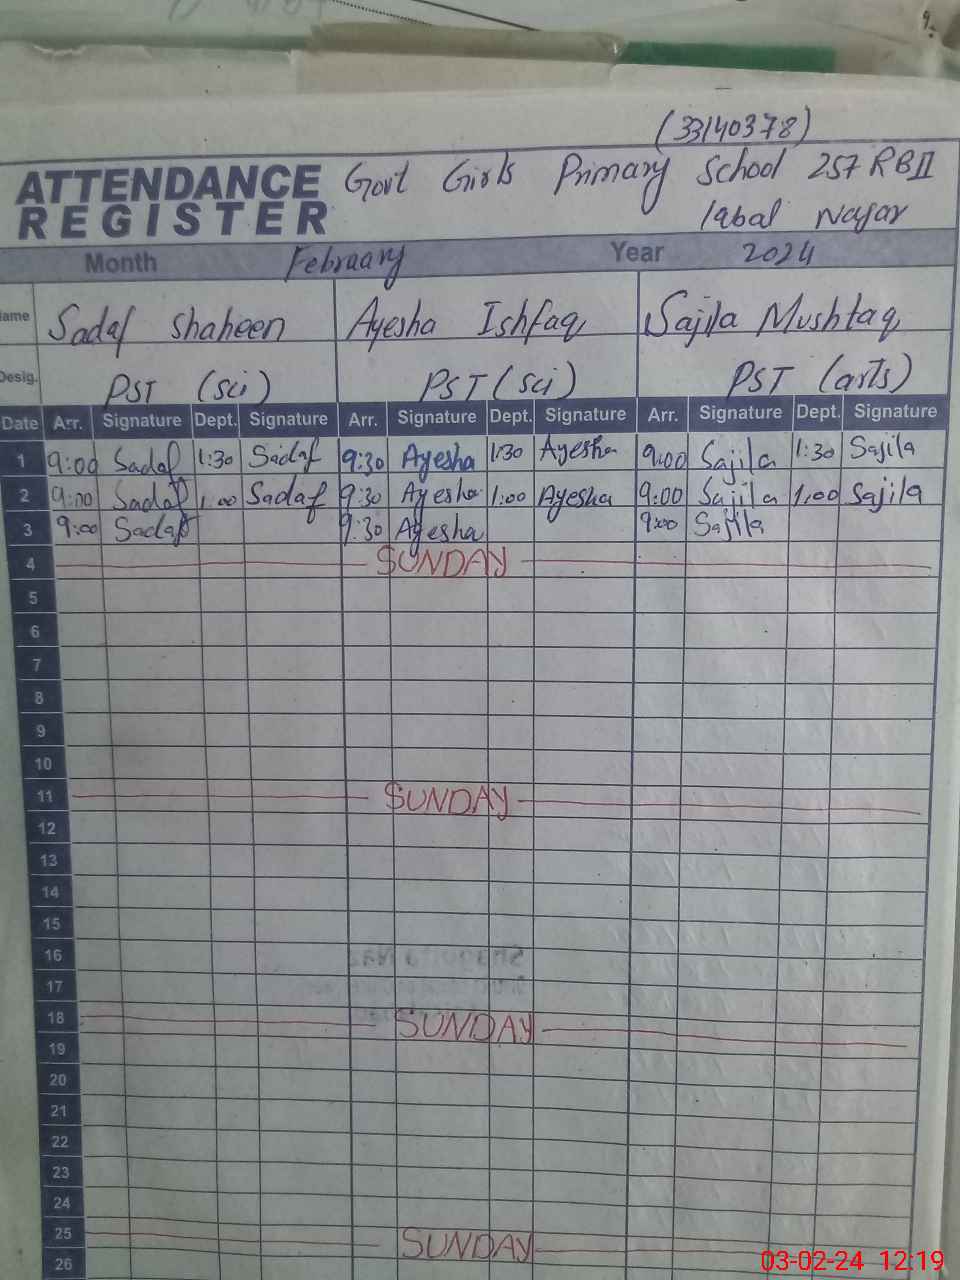 (33140378)
ATTENDANCE REGISTER Govt Girls Primary School 257 RB II
Iqbal Nagar
Month February Year 2024
Name Sadaf Shaheen Ayesha Ishfaq Sajila Mushtaq
Desig. PST (sci) PST (sci) PST (arts)
Date Arr. Signature Dept. Signature Arr. Signature Dept. Signature Arr. Signature Dept. Signature
1 9:00 Sadaf 1:30 Sadaf 9:30 Ayesha 1:30 Ayesha 9:00 Sajila 1:30 Sajila
2 9:00 Sadaf 1:00 Sadaf 9:30 Ayesha 1:00 Ayesha 9:00 Sajila 1:00 Sajila
3 9:00 Sadaf 9:30 Ayesha 9:00 Sajila
4 SUNDAY
5
6
7
8
9
10
11 SUNDAY
12
13
14
15
16
17
18 SUNDAY
19
20
21
22
23
24
25 SUNDAY
26
03-02-24 12:19